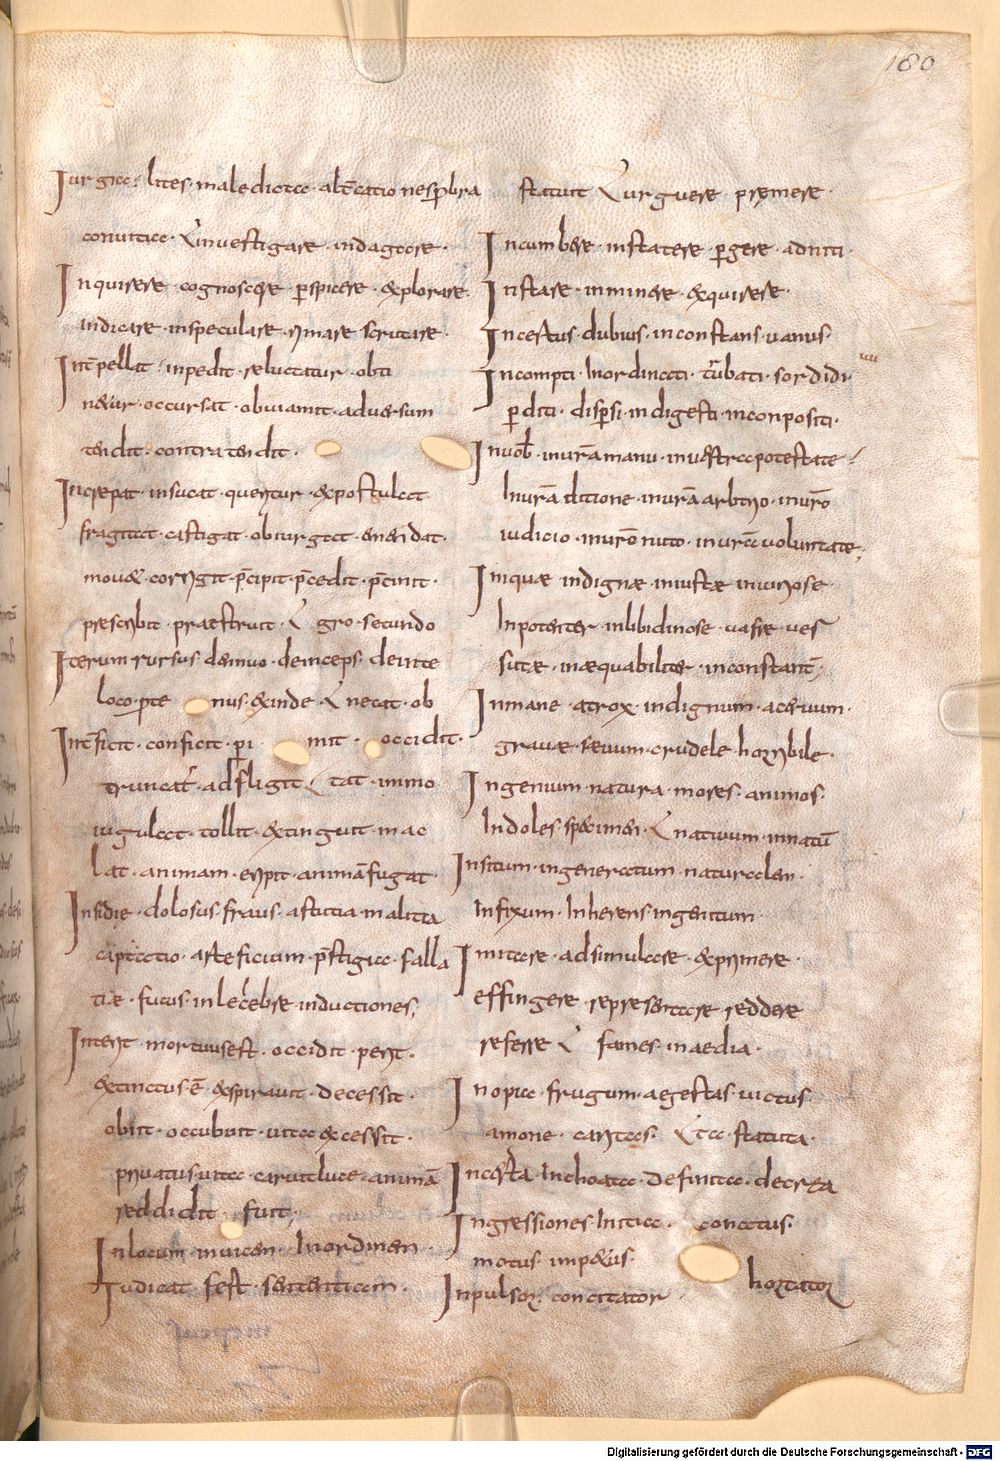 180
Iurgia · lites · maledicta · altcatio nesprobra
conuitia · inuestigare · indagare ·
Inquirere · cognoscere perspicere · explorare ·
indicare · inspeculare · rimare scrutare ·
Intpellit · inpedit · reluctatur · obti
netur · occursat · obuiamit · aduersum
tendit · contra tendit ·
Increpat · insucat · queritur · expostulat
fragitat · castigat · obiurgat · emendat ·
mouet · corrigit · pcipit · pcedit · pcinit ·
prescribit · praestruit gro · secundo
Iterum rursus denuo · deinceps · deinte
loco · pte nus · exinde necat · ob
Intficit · conficit · pi mit · occidit ·
truncat · adfligit tat · immo
iugulat · tollit · extinguit · mac
lat · animam · eripit · animā fugat ·
Insidię · dolosus · fraus · astutia · malitia
captatio · arteficium · pstigia · falla
tiæ · fucus · inlecebre · inductiones,
Interit · mortuus est · occidit · perit ·
extinctus · ē · expirauit · decessit ·
obiit · occubuit · uita excessit ·
priuatus uita · caruit luce · animā
reddidit fuit,
In locum · inuicem · In ordinem ·
Iudicat fest · sententiam ·
statuit urguere · pręmere ·
Incumbere · instatere · pgere · adniti ·
Instare · inminere · exquirere ·
Incertus · dubius · inconstans · uanus ·
Incompti · Inordinati · turbati · sordidi ·
pditi · dispsi · indigesti · inconpositi ·
In uob · in urāmanu · in uestra potestate
In urā ditione · in urā arbitrio · in urō
iudicio · in urō nuto · in urā uoluntate,
Iniquæ indignæ · iniustæ iniuriose ·
Inpotenter · inlibidinose · uafre · uer
sutæ · inæquabiliter · inconstant,
Inmane · atrox · indignum · aceruum ·
grauæ · seuum · crudele · horribile ·
Ingenium · natura · mores · animos ·
Indoles · specimen · natiuum · innatū
Insitum · ingeneratum · naturalem ·
Infixum · Inherens ingenitum ·
Imitare · adsimulare · exprimere ·
effingere · representare · reddere
referre fames · inaedia ·
Inopia · frugum · aegestas · uictus
amone · caritas · ta · statuta ·
Incerta · Inchoata · definita · decreta
Ingressiones Initia · conatus ·
motus · impetus ·
Inpulsor · concitator hortator
Digitalisierung gefördert durch die Deutsche Forschungsgemeinschaft - DFG